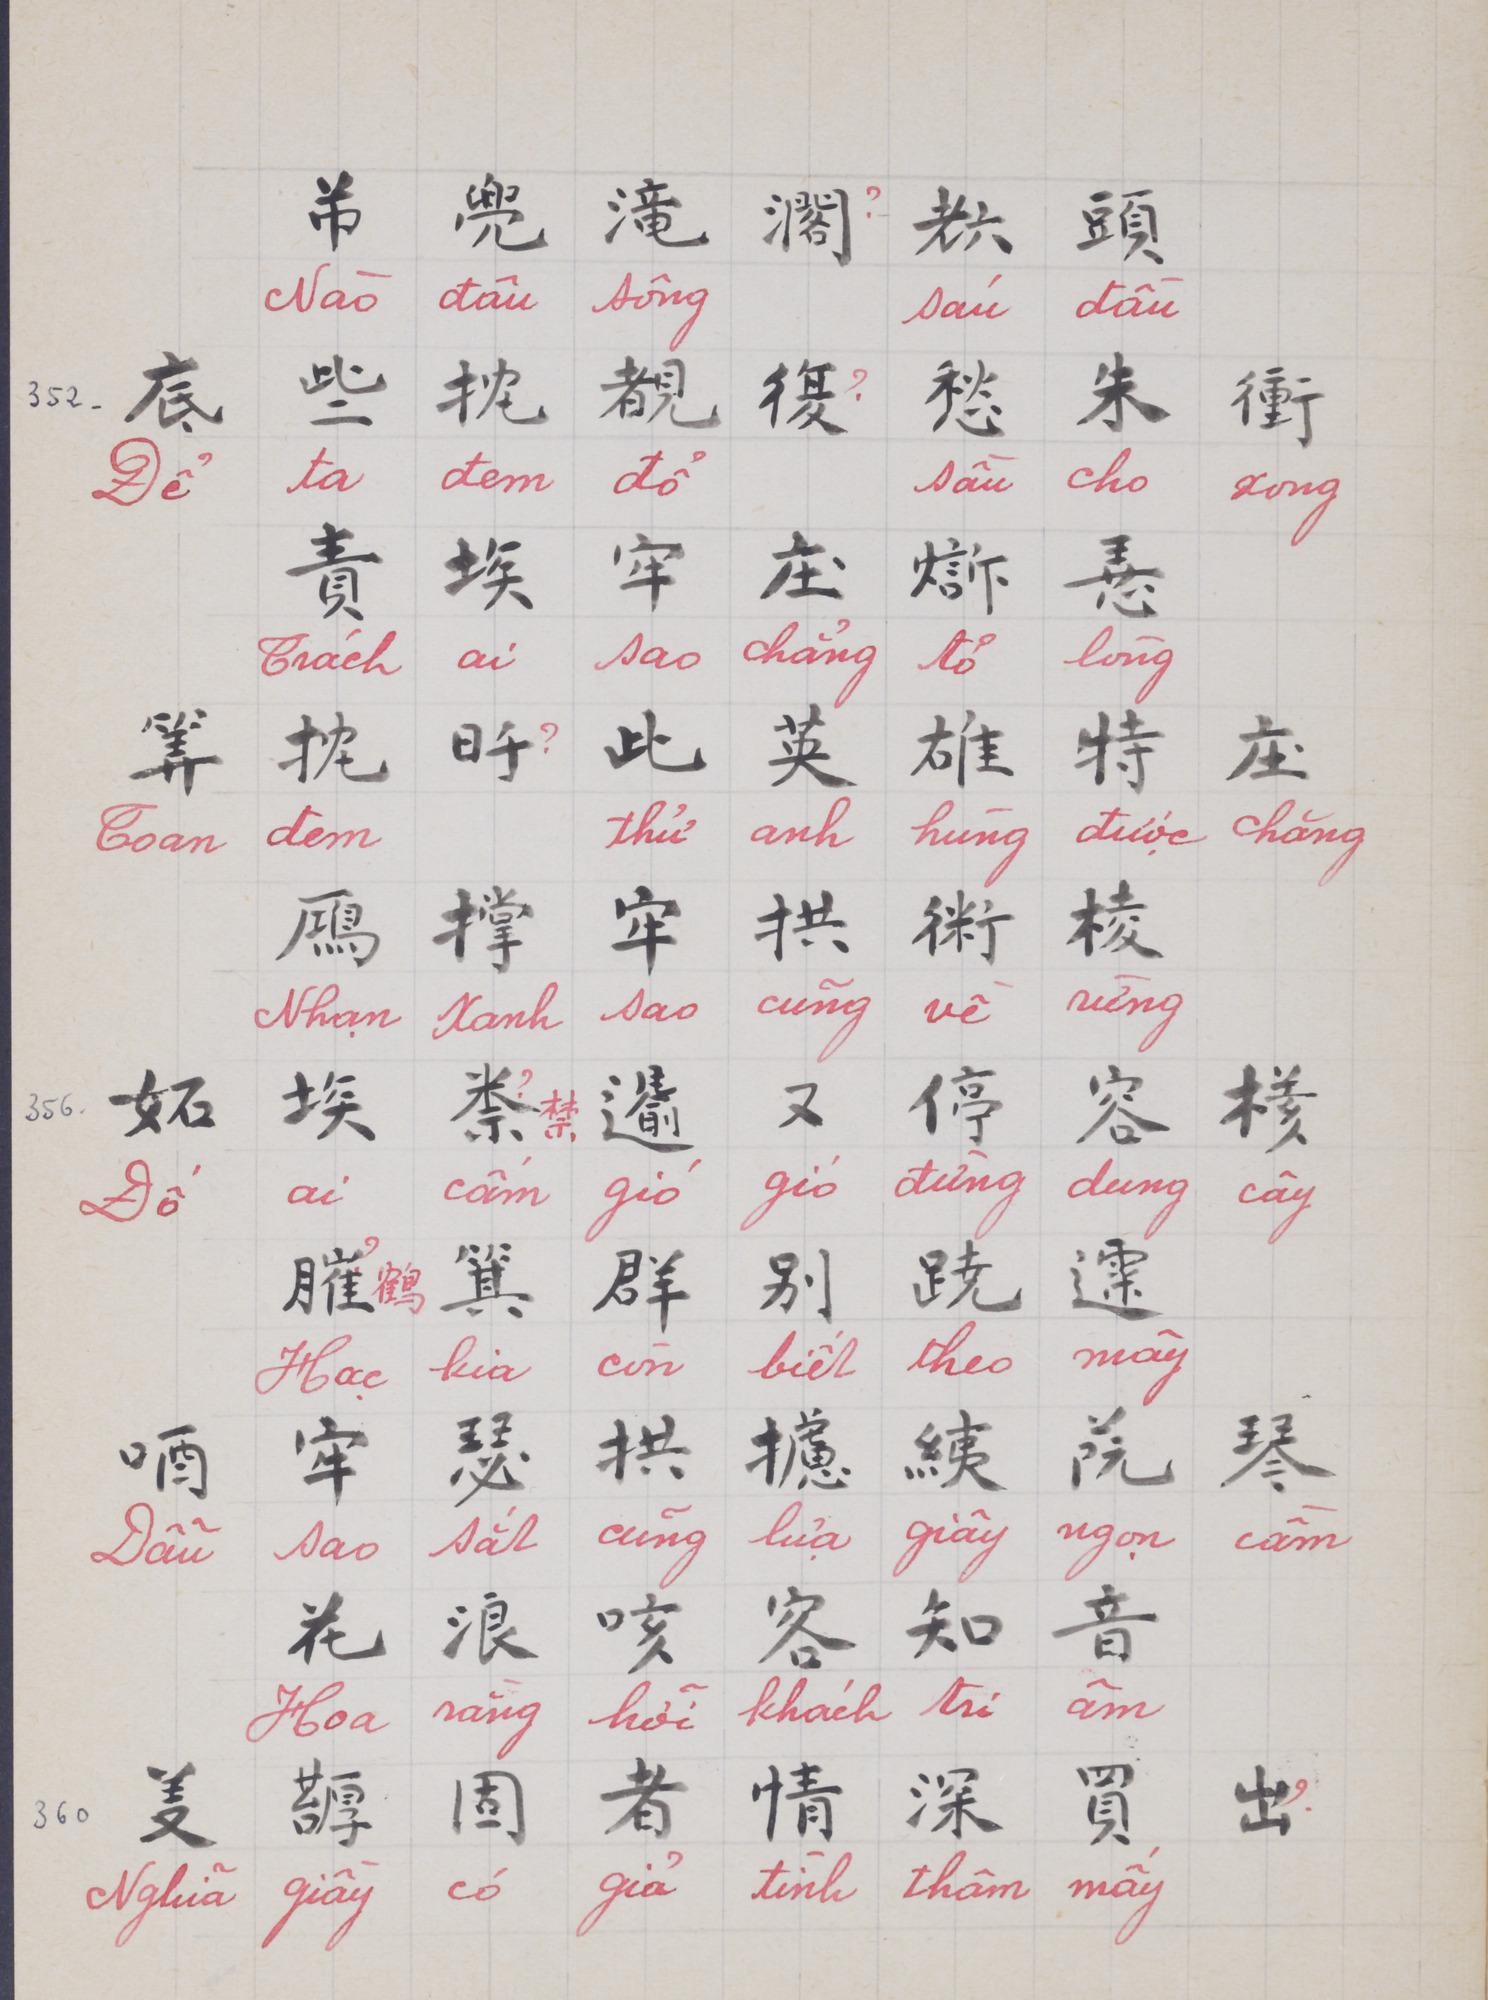 吊 兜 滝 濶? 𦒹 頭
Nào đâu sông sáu đầu
352- 底 些 抌 覩 復? 愁 朱 衝
Để ta đem đổ sầu cho xong
責 埃 牢 庄 𤏣 𢚸
Trách ai sao chẳng tỏ lòng
筭 抌 旿? 此 英 雄 特 庄
Toan đem thử anh hùng được chăng
鴈 撑 牢 拱 衔 棱
Nhạn xanh sao cũng về rừng
356- 妬 埃 禁? 禁 又 停 容 核
Đố ai cấm gió gió đừng dung cây
? 鶴 箕 群 別 蹺 䨺
Hạc kia còn biết theo mây
唒 牢 瑟 拱 攄 院 琴
Dẫu sao sắt cũng lựa giây ngọn cầm
花 浪 咳 客 知 音
Hoa rằng hỡi khách tri âm
360 固 者 情 深 買 出?
Nghĩa giầy có giả tình thâm mấy